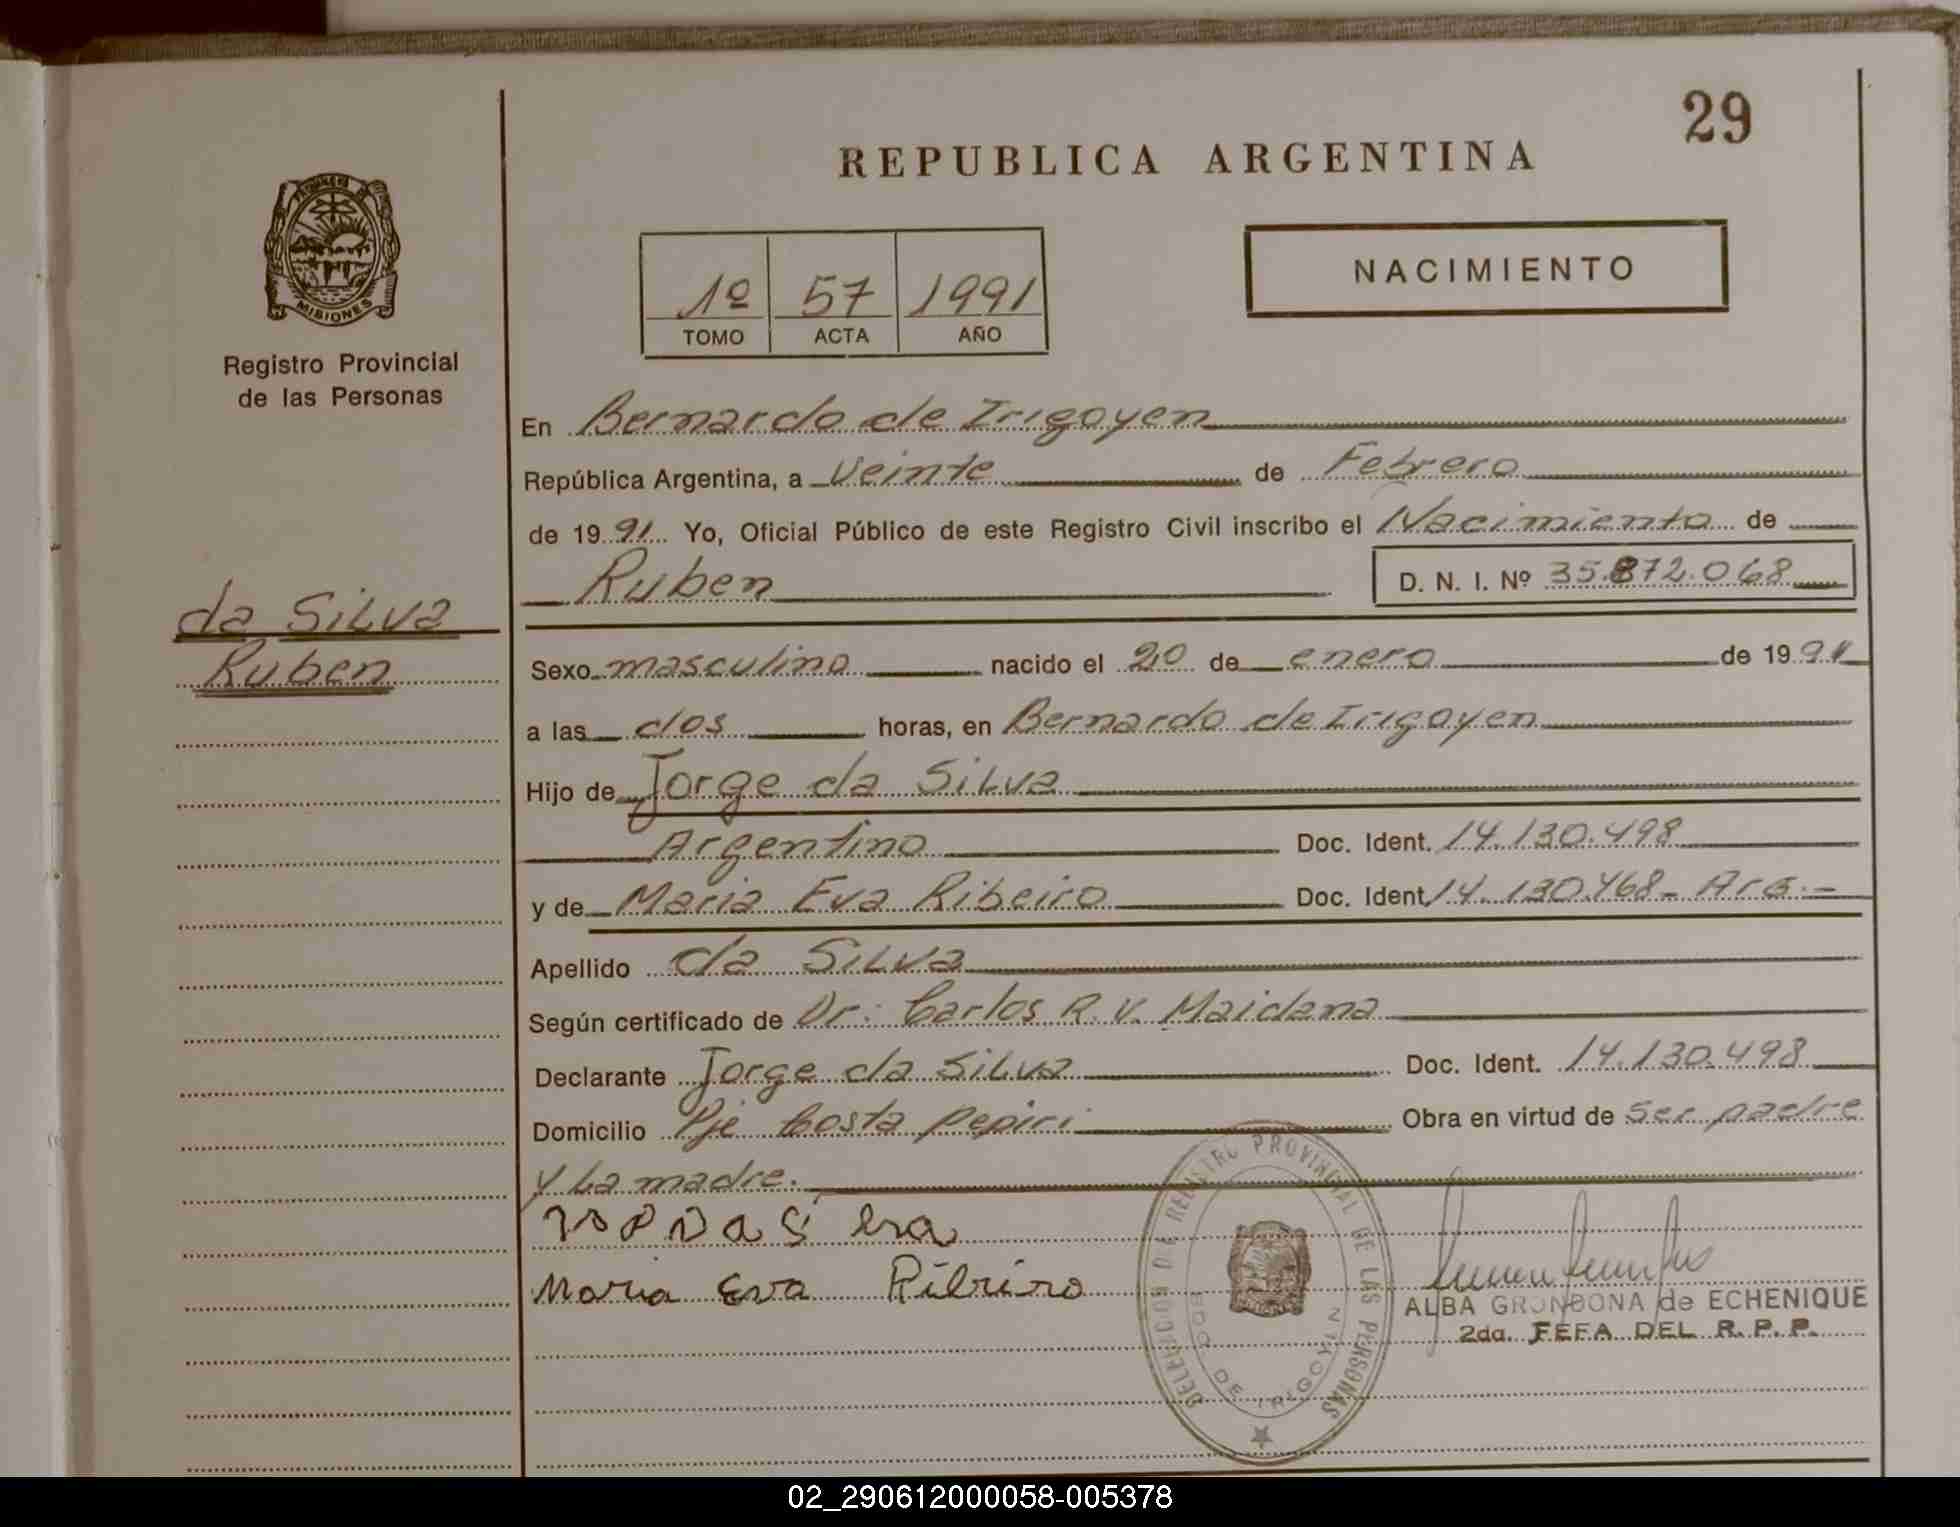 29
REPUBLICA ARGENTINA
MISIONES
Registro Provincial
de las Personas
1º 57 1991
TOMO ACTA AÑO
NACIMIENTO
En Bernardo de Irigoyen
República Argentina, a veinte de Febrero
de 1991 Yo, Oficial Público de este Registro Civil inscribo el Nacimiento de
Ruben D. N. I. Nº 35.872.068
da Silva
Ruben
Sexo masculino nacido el 20 de enero de 1991
a las dos horas, en Bernardo de Irigoyen
Hijo de Jorge da Silva
Argentino Doc. Ident. 14.130.498
y de Maria Eva Ribeiro Doc. Ident. 14.130.468- Arg.-
Apellido da Silva
Según certificado de Dr: Carlos R. V. Maidana
Declarante Jorge da Silva Doc. Ident. 14.130.498
Domicilio Pje Costa Pepiri Obra en virtud de Ser padre
y La madre.
Maria Eva Ribeiro
DELEGACION DEL REGISTRO PROVINCIAL DE LAS PERSONAS
BDO DE IRIGOYEN
ALBA GRONDONA de ECHENIQUE
2da. JEFA DEL R. P. P.
02_290612000058-005378